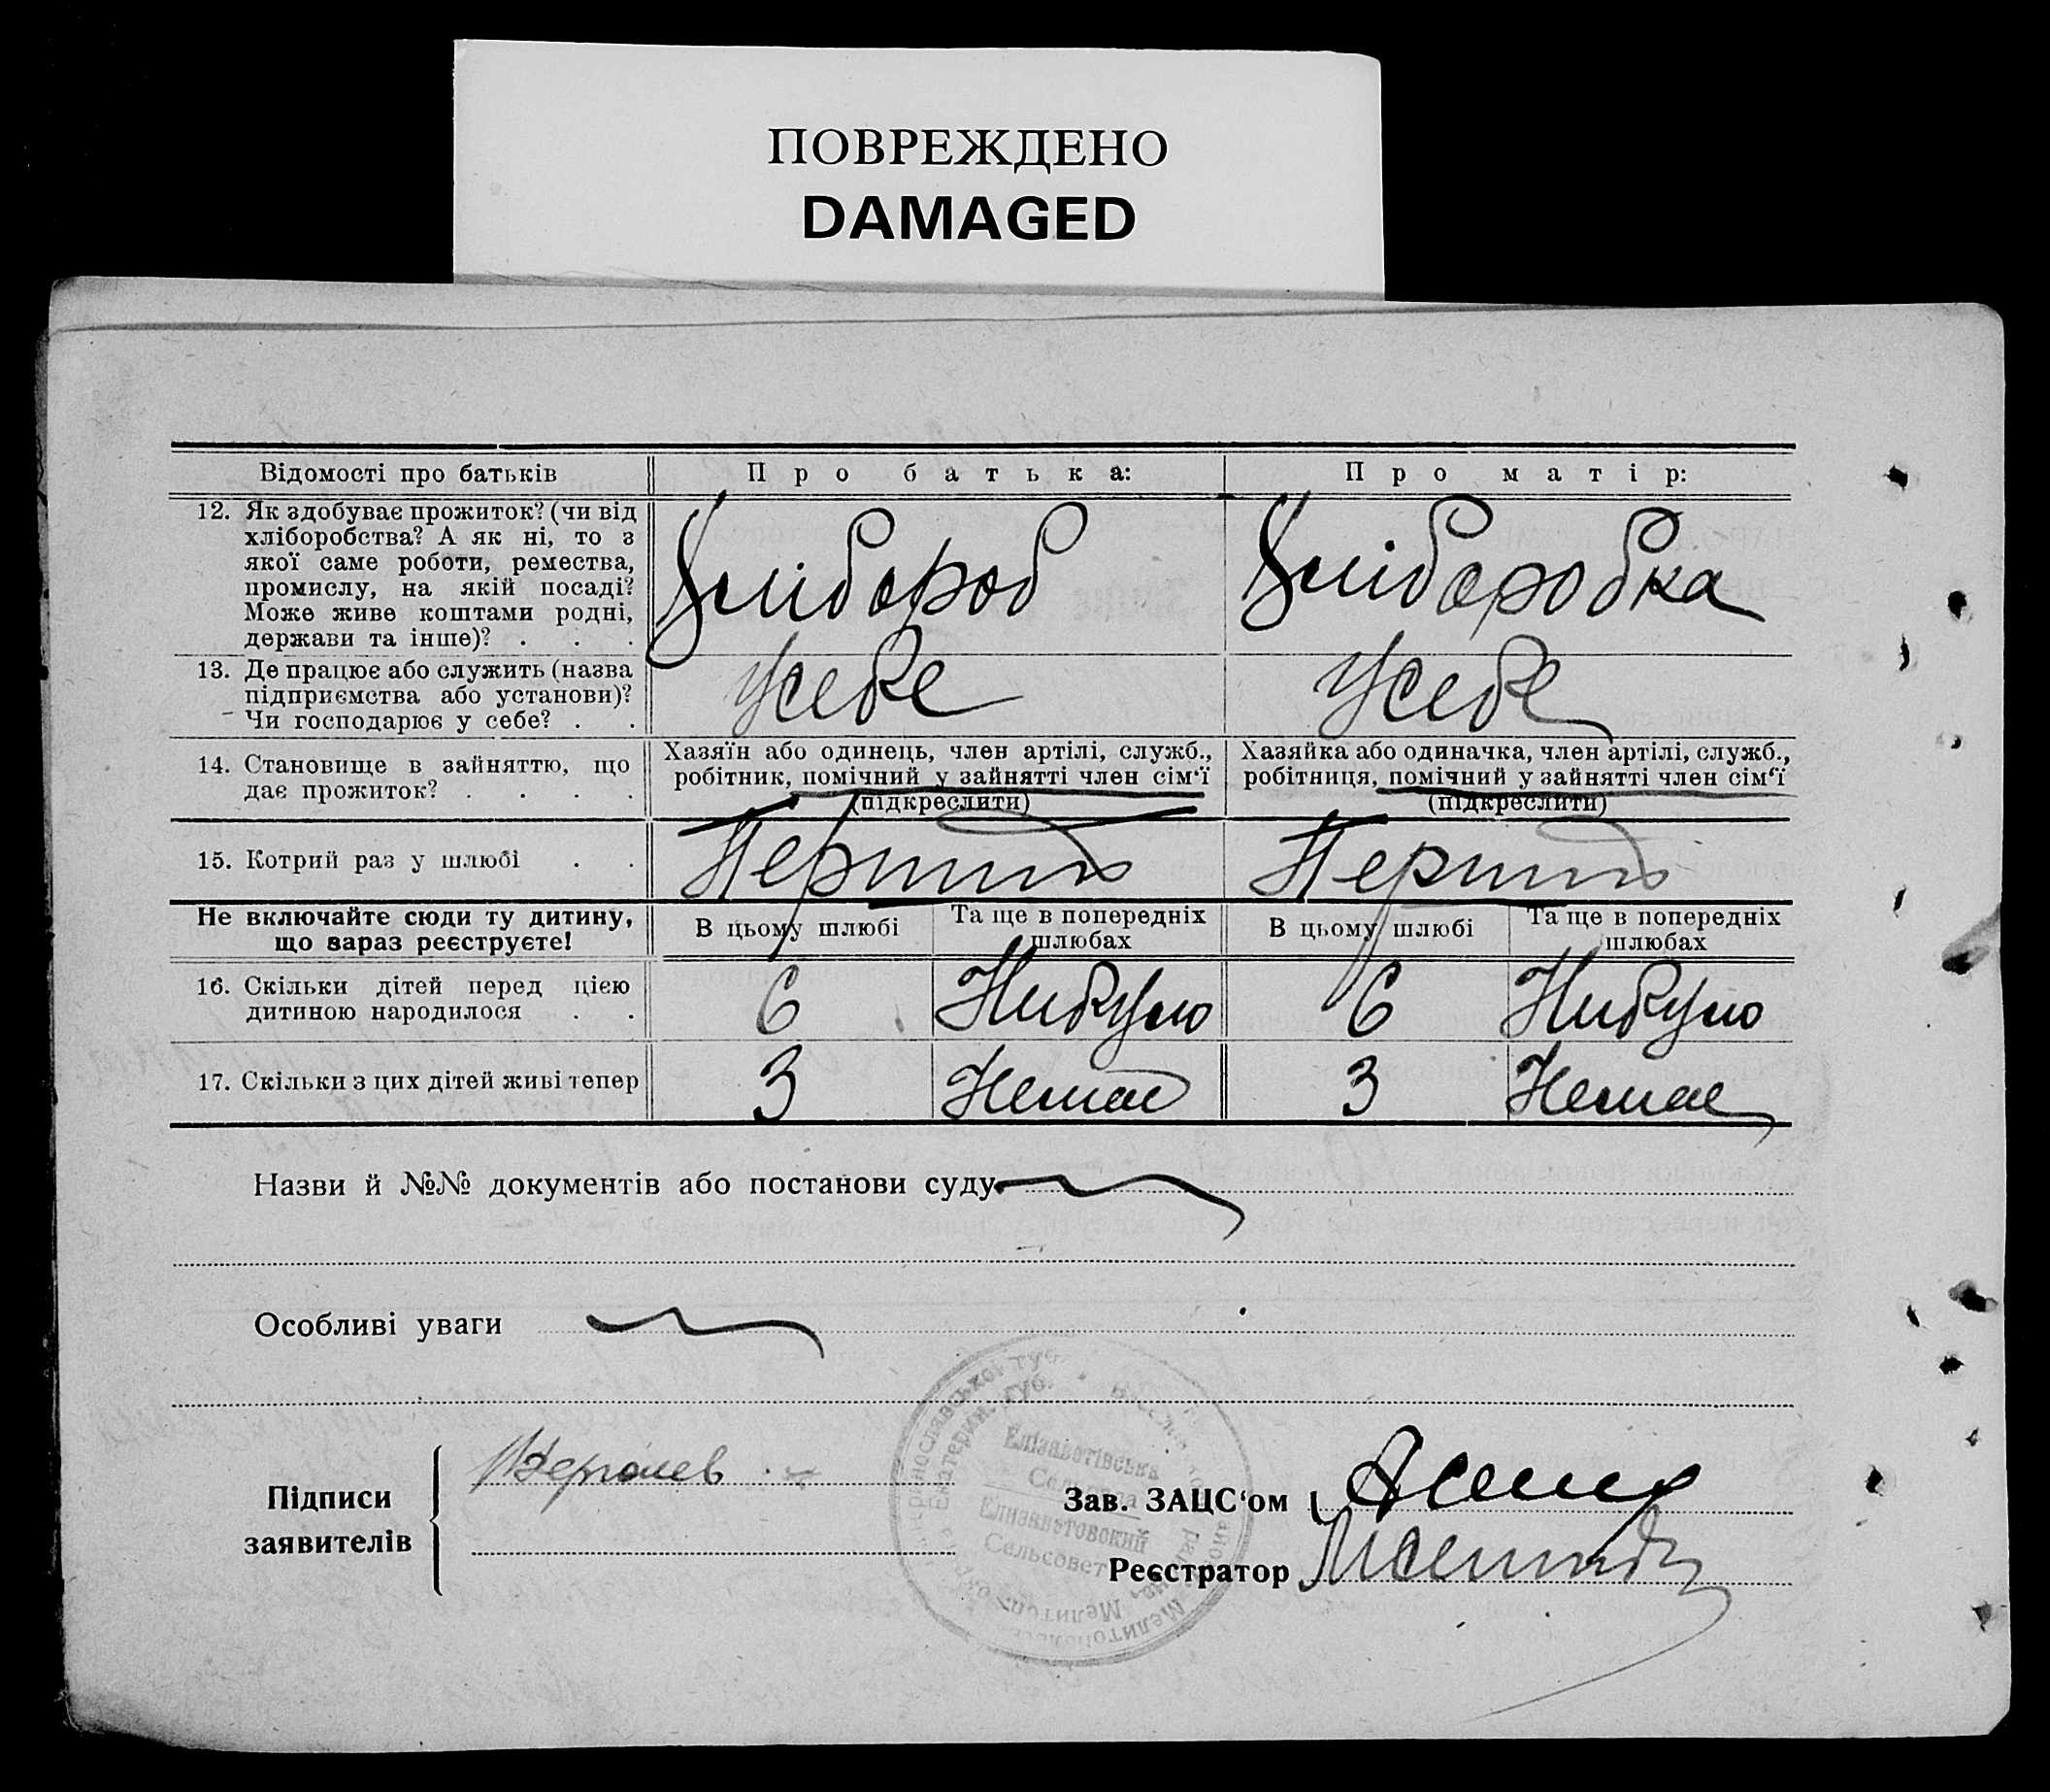 ПОВРЕЖДЕНО
DAMAGED
Відомості про батьків
Про батька:
Про матір:
12. Як здобуває прожиток? (чи від
хліборобства? А як ні, то з
якої саме роботи, ремества,
промислу, на якій посаді?
Може живе коштами родні,
держави та інше)? . . .
Хлібороб
Хліборобка
13. Де працює або служить (назва
підприємства або установи)?
Чи господарює у себе? . .
Усебе
Усебе
14. Становище в зайняттю, що
дає прожиток? . . . .
Хазяїн або одинець, член артілі, служб.,
робітник, помічний у зайнятті член сім'ї
(підкреслити)
Хазяйка або одиначка, член артілі, служб.,
робітниця, помічний у зайнятті член сім'ї
(підкреслити)
15. Котрий раз у шлюбі . .
Перший
Перший
Не включайте сюди ту дитину,
що зараз реєструєте!
В цьому шлюбі
Та ще в попередніх
шлюбах
В цьому шлюбі
Та ще в попередніх
шлюбах
16. Скільки дітей перед цією
дитиною народилося . .
6
Нибуло
6
Нибуло
17. Скільки з цих дітей живі тепер
3
Немае
3
Немае
Назви й №№ документів або постанови суду
Особливі уваги
Підписи
заявителів
Зав. ЗАЦС'ом
Реєстратор
Елізаветівська
Сельрада
Елизаветовский
Сельсовет